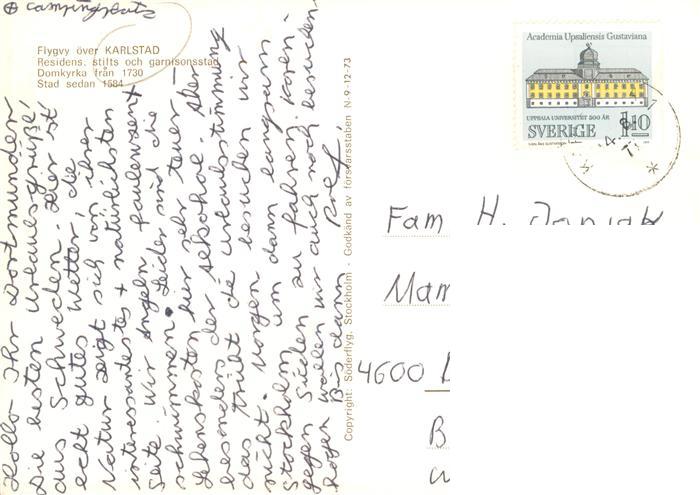 ⊕ Campingplatz
Flygvy över KARLSTAD
Residens, stifts och garnisonsstad
Domkyrka från 1730
Stad sedan 1584
Hallo Ihr Dortmunder
Die besten Urlaubsgrüße,
aus Schweden. Hier ist
echt gutes Wetter, die
Natur zeigt sich von ihrer
interessantesten + natürlichsten
Seite. Wir angeln, faulenzen +
schwimmen. Leider sind die
Lebenskosten hier sehr teuer –
besonders der Alkohol. Aber
das trübt die Urlaubsstimmung
nicht. Morgen besuchen wir
Stockholm um dann langsam
gegen Süden zu fahren. Kopen-
hagen wollen wir auch noch besuchen.
Bis dann Rolf
Copyright: Söderflyg, Stockholm - Godkänd av försvarsstaben N-9-12-73
Academia Upsaliensis Gustaviana
UPPSALA UNIVERSITET 500 ÅR
SVERIGE 1.10
Fam H.
Mam
4600
B